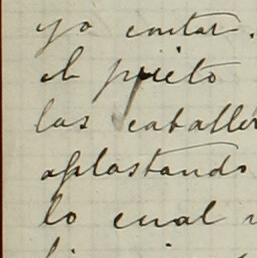 yo contar.
el prieto
las caballer
aplastando
lo cual